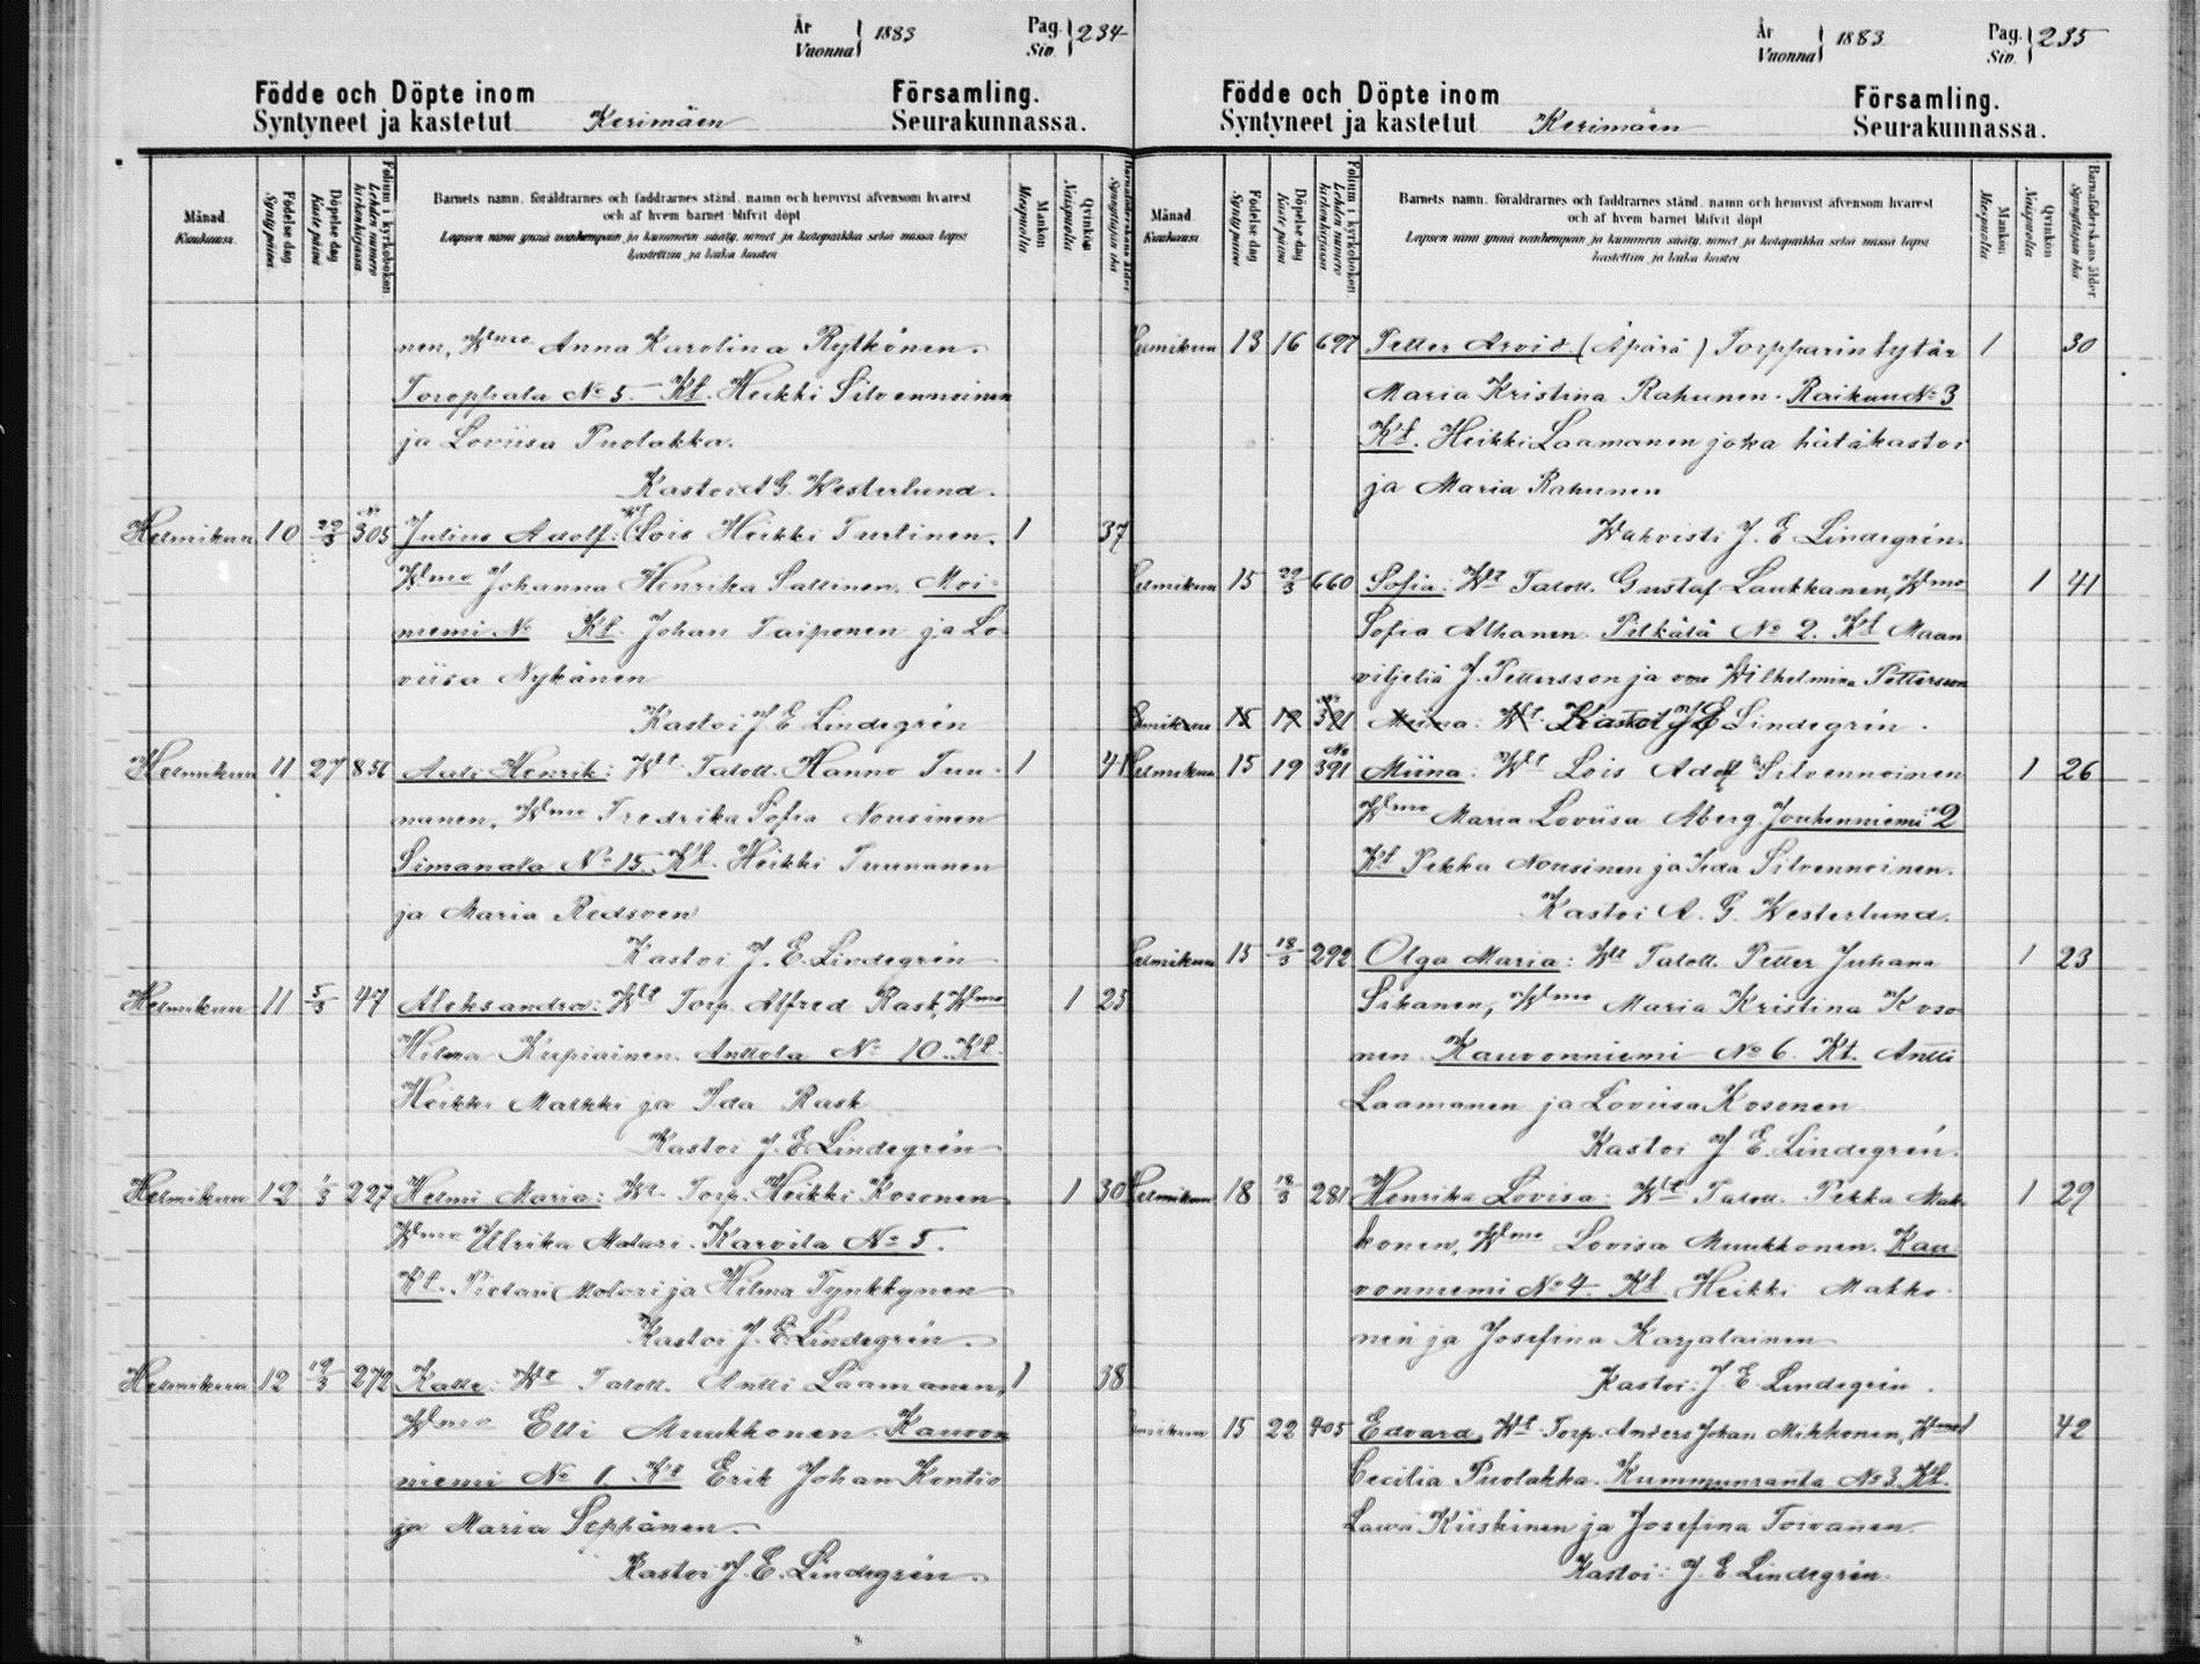 År
Vuonna 1883
Pag.
Siv. 234
Födde och Döpte inom Församling.
Syntyneet ja kastetut Kerimäen Seurakunnassa.
Månad
Kuukausi
Födelse dag
Synty päivä
Döpelse dag
Kaste päivä
Folium i kyrkoboken
Lehden numero kirkonkirjassa
Barnets namn, föräldrarnes och faddrarnes stånd, namn och hemvist äfvensom hvarest
och af hvem barnet blifvit döpt
Lapsen nimi ynnä vanhempain ja kummein sääty, nimet ja kotopaikka sekä missä lapsi
kastettiin ja kuka kastoi
Mankön
Miespuolia
Qvinkön
Naispuolia
Barnaföderskans ålder
Synnyttäjän ikä
nen, Wmo Anna Karolina Rytkönen.
Toroppala No 5. Kt. Heikki Silvennoinen
ja Loviisa Puolakka.
Kastoi A G. Westerlund.
Helmikuu 10 22/3 No 305 Julius Adolf: Wt Lois Heikki Tuulinen. 1 37
Wmo Johanna Henrika Sallinen. Moi-
niemi No Kt. Johan Taiponen ja Lo-
viisa Nykänen
Kastoi J E Lindegrén
Helmikuu 11 27 856 Anti Henrik: Wt Taloll. Hanno Tuu- 1 41
nanen, Wmo Fredrika Sofia Nousinen
Simanala No 15. Kt. Heikki Tuunanen
ja Maria Redsven
Kastoi J. E. Lindegrén
Helmikuu 11 5/3 47 Aleksandra: Wt Torp. Alfred Rask, Wmo 1 25
Hilma Kupiainen. Anttola No 10. Kt.
Heikki Malkki ja Ida Rask
Kastoi J. E. Lindegrén
Helmikuu 12 1/3 227 Helmi Maria: Wt. Torp. Heikki Kosonen 1 30
Wmo Ulrika Matari. Karvila No 5.
Kt. Pietari Molari ja Hilma Tynkkynen
Kastoi J. E. Lindegrén.
Helmikuu 12 19/3 272 Kalle: Wt Taloll. Antti Laamanen, 1 38
Wmo Elli Muukkonen. Kauvon
niemi No 1. Kt Erik Johan Kontio
ja Maria Seppänen.
Kastoi J. E. Lindegrén.
År
Vuonna 1883
Pag.
Siv. 235
Födde och Döpte inom Församling.
Syntyneet ja kastetut Kerimäen Seurakunnassa.
Månad
Kuukausi
Födelse dag
Synty päivä
Döpelse dag
Kaste päivä
Folium i kyrkoboken
Lehden numero kirkonkirjassa
Barnets namn, föräldrarnes och faddrarnes stånd, namn och hemvist äfvensom hvarest
och af hvem barnet blifvit döpt
Lapsen nimi ynnä vanhempain ja kummein sääty, nimet ja kotopaikka sekä missä lapsi
kastettiin ja kuka kastoi
Mankön
Miespuolia
Qvinkön
Naispuolia
Barnaföderskans ålder
Synnyttäjän ikä
Helmikuu 13 16 697 Petter Arvid (Äpärä) Torpparin tytär 1 30
Maria Kristina Rahunen. Raikuu No 3
Kt. Heikki Laamanen joka hätäkastoi
ja Maria Rahunen
Wahvisti J. E Lindegrén.
Helmikuu 15 29/3 660 Sofia: Wt Taloll. Gustaf Laukkanen, Wmo 1 41
Sofia Alhanen. Pitkälä No 2. Kt Maan
viljeliä J. Pettersson ja vmo Wilhelmina Pettersson
Helmikuu 15 19 391 Miina: Wt. Kastoi J E Lindegrén.
Helmikuu 15 19 No 391 Miina: Wt Lois Adolf Silvennoinen 1 26
Wmo Maria Loviisa Aberg. Jouhenniemi 2
Kt Pekka Nousinen ja Ida Silvennoinen.
Kastoi A. G. Westerlund.
Helmikuu 15 18/3 292 Olga Maria: Wt Taloll. Petter Juhana 1 23
Sikanen, Wmo Maria Kristina Koso
nen. Kauvonniemi No 6. Kt. Antti
Laamanen ja Loviisa Kosonen
Kastoi J E. Lindegrén.
Helmikuu 18 18/3 281 Henrika Lovisa: Wt Taloll. Pekka Mak- 1 29
konen, Wmo Lovisa Muukkonen. Kau
vonniemi No 4. Kt Heikki Makko-
nen ja Josefina Karjalainen
Kastoi: J. E. Lindegrén.
Helmikuu 15 22 405 Edvard. Wt Torp. Anders Johan Mikkonen, Wmo 1 42
Cecilia Puolakka. Kummunranta No 3. Kt.
Lauri Kiiskinen ja Josefina Toivanen.
Kastoi: J. E Lindegrén.